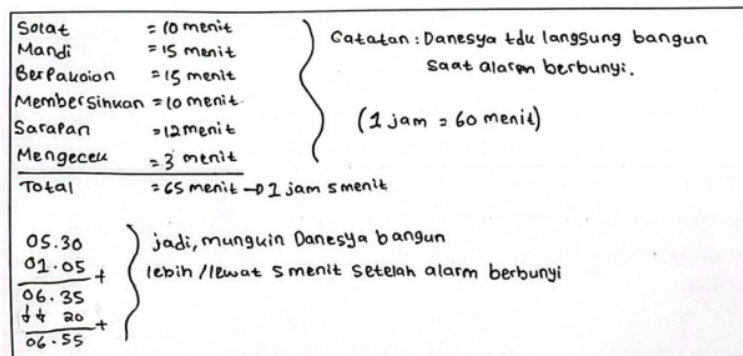 Solat = 10 menit
Mandi = 15 menit
Berpakaian = 15 menit
Membersihkan = 10 menit
Sarapan = 12 menit
Mengecek = 3 menit
Total = 65 menit → 1 jam 5 menit
Catatan : Danesya tdk langsung bangun
saat alarm berbunyi.
(1 jam = 60 menit)
05.30
01.05 +
06.35
↓↓ 20 +
06.55
jadi, mungkin Danesya bangun
lebih / lewat 5 menit setelah alarm berbunyi